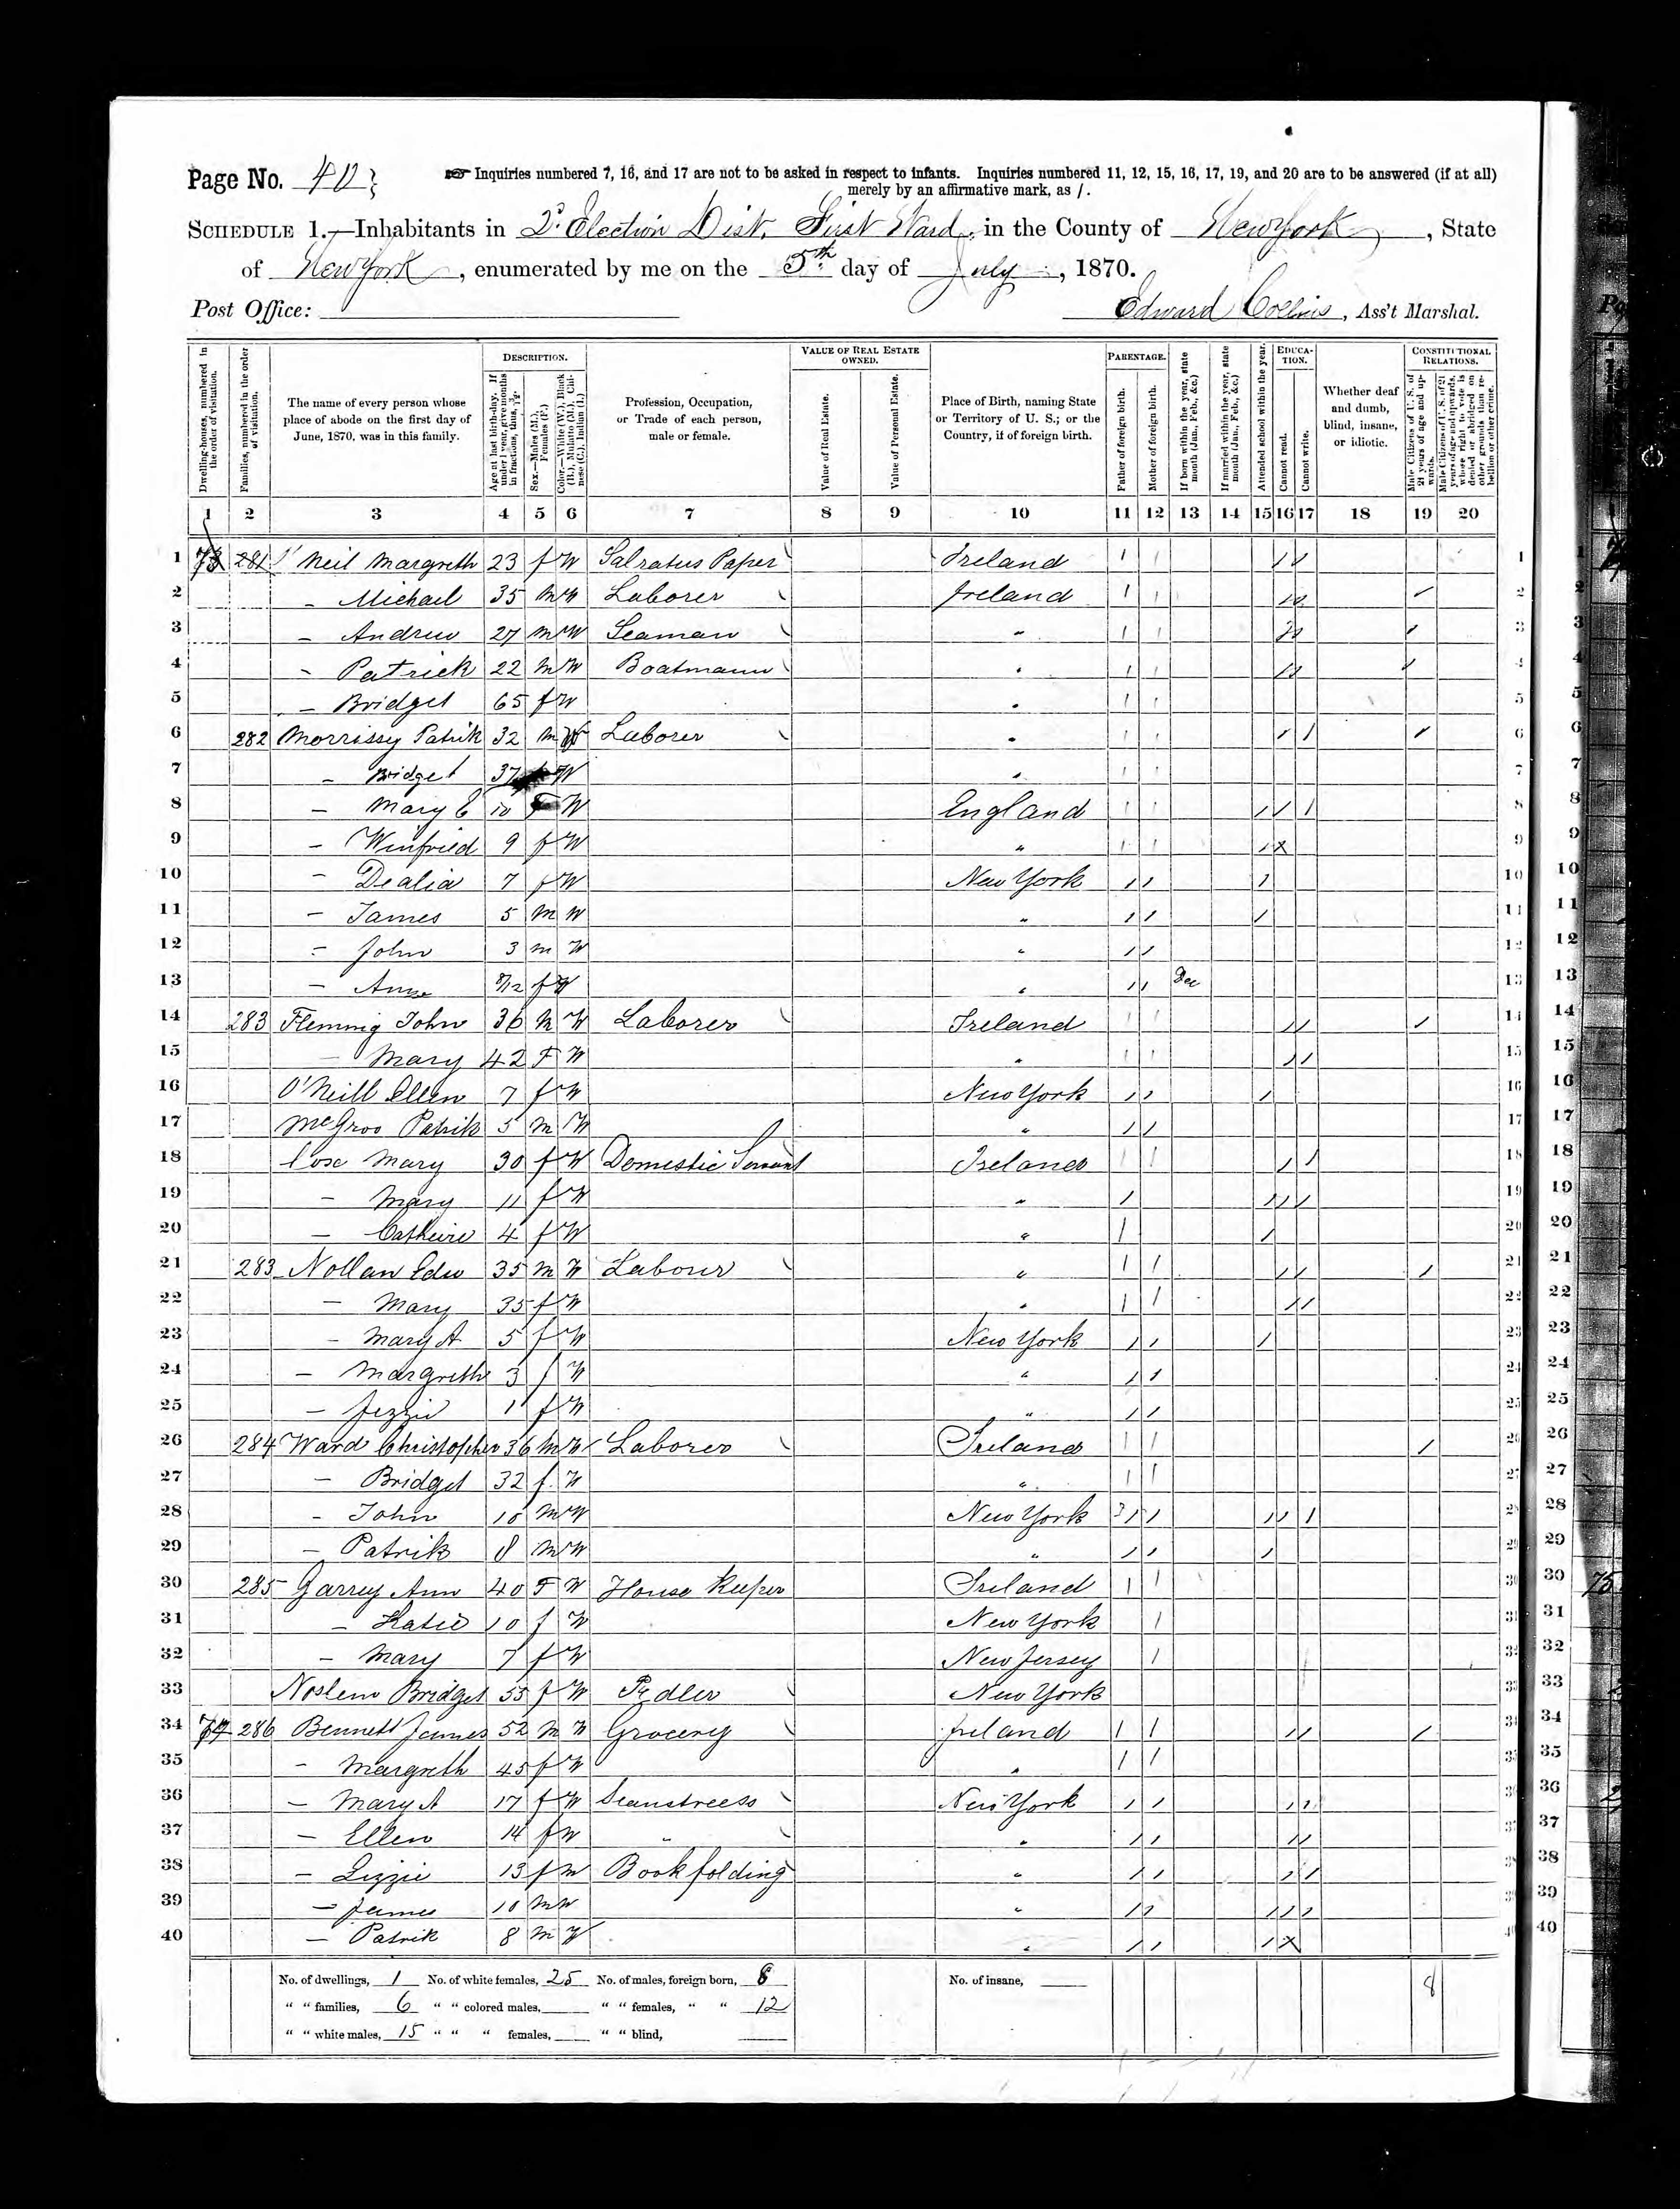 Page No. 40
Inquiries numbered 7, 16, and 17 are not to be asked in respect to infants. Inquiries numbered 11, 12, 15, 16, 17, 19, and 20 are to be answered (if at all)
merely by an affirmative mark, as /.
SCHEDULE 1.—Inhabitants in 2d Election Dist. First Ward, in the County of New York, State
of New York, enumerated by me on the 5th day of July, 1870.
Post Office:
Edward Collins, Ass't Marshal.
Dwelling-houses, numbered in the order of visitation.
Families, numbered in the order of visitation.
The name of every person whose place of abode on the first day of June, 1870, was in this family.
DESCRIPTION.
Age at last birth-day. If under 1 year, give months in fractions, thus, 3/12.
Sex.—Males (M.), Females (F.)
Color.—White (W.), Black (B.), Mulatto (M.), Chinese (C.), Indian (I.)
Profession, Occupation, or Trade of each person, male or female.
VALUE OF REAL ESTATE OWNED.
Value of Real Estate.
Value of Personal Estate.
Place of Birth, naming State or Territory of U. S.; or the Country, if of foreign birth.
PARENTAGE.
Father of foreign birth.
Mother of foreign birth.
If born within the year, state month (Jan., Feb., &c.)
If married within the year, state month (Jan., Feb., &c.)
Attended school within the year.
EDUCATION.
Cannot read.
Cannot write.
Whether deaf and dumb, blind, insane, or idiotic.
CONSTITUTIONAL RELATIONS.
Male Citizens of U. S. of 21 years of age and upwards.
Male Citizens of U. S. of 21 years of age and upwards, whose right to vote is denied or abridged on other grounds than rebellion or other crime.
1 2 3 4 5 6 7 8 9 10 11 12 13 14 15 16 17 18 19 20
1 73 281 O' Neil Margreth 23 f W Salratus Paper Ireland / / / / 1
2 – Michael 35 M W Laborer Ireland / / / / / 2
3 – Andrew 27 M W Seaman " / / / / / 3
4 – Patrick 22 M W Boatmann " / / / / / 4
5 – Bridget 65 f W " / / 5
6 282 Morrissy Patrik 32 M W Laborer " / / / / / 6
7 – Bridget 37 W " / / 7
8 – Mary E 10 F W England / / / / / 8
9 – Winfried 9 f W " / / / X 9
10 – Dealia 7 f W New York / / / 10
11 – James 5 M W " / / / 11
12 – John 3 M W " / / 12
13 – Ann 8/12 f W " / / Dec 13
14 283 Flemmig John 36 M W Laborer Ireland / / / / / 14
15 – Mary 42 F W " / / / / 15
16 O'Neill Ellen 7 f W New York / / / 16
17 McGroo Patrik 5 M W " / / 17
18 Cox Mary 30 f W Domestic Servant Ireland / / / / 18
19 – Mary 11 f W " / / / / 19
20 – Catheire 4 f W " / / 20
21 283 Nollan Edw 35 M W Labourer " / / / / / 21
22 – Mary 35 f W " / / / / 22
23 – Mary A 5 f W New York / / / 23
24 – Margreth 3 f W " / / 24
25 – Jezzie 1 f W " / / 25
26 284 Ward Christopher 36 M W Laborer Ireland / / / 26
27 – Bridget 32 f W " / / 27
28 – John 10 M W New York / / / / / 28
29 – Patrik 8 M W " / / / 29
30 285 Garrey Ann 40 F W House Keeper Ireland / / 30
31 – Katie 10 f W New York / 31
32 – Mary 7 f W New Jersey / 32
33 Bridget 55 f W Pedler New York 33
34 74 286 Bennett James 52 M W Grocery Ireland / / / / / 34
35 – Margreth 45 f W " / / 35
36 – Mary A 17 f W Seamstreess New York / / / / 36
37 – Ellen 14 f W " " / / / / 37
38 – Lizzie 13 f W Book folding " / / / / 38
39 – James 10 M W " / / / / / 39
40 – Patrik 8 M W " / / / X 40
No. of dwellings, 1 No. of white females, 25 No. of males, foreign born, 8 No. of insane, 8
" " families, 6 " " colored males, " " females, " " 12
" " white males, 15 " " " females, " " blind,